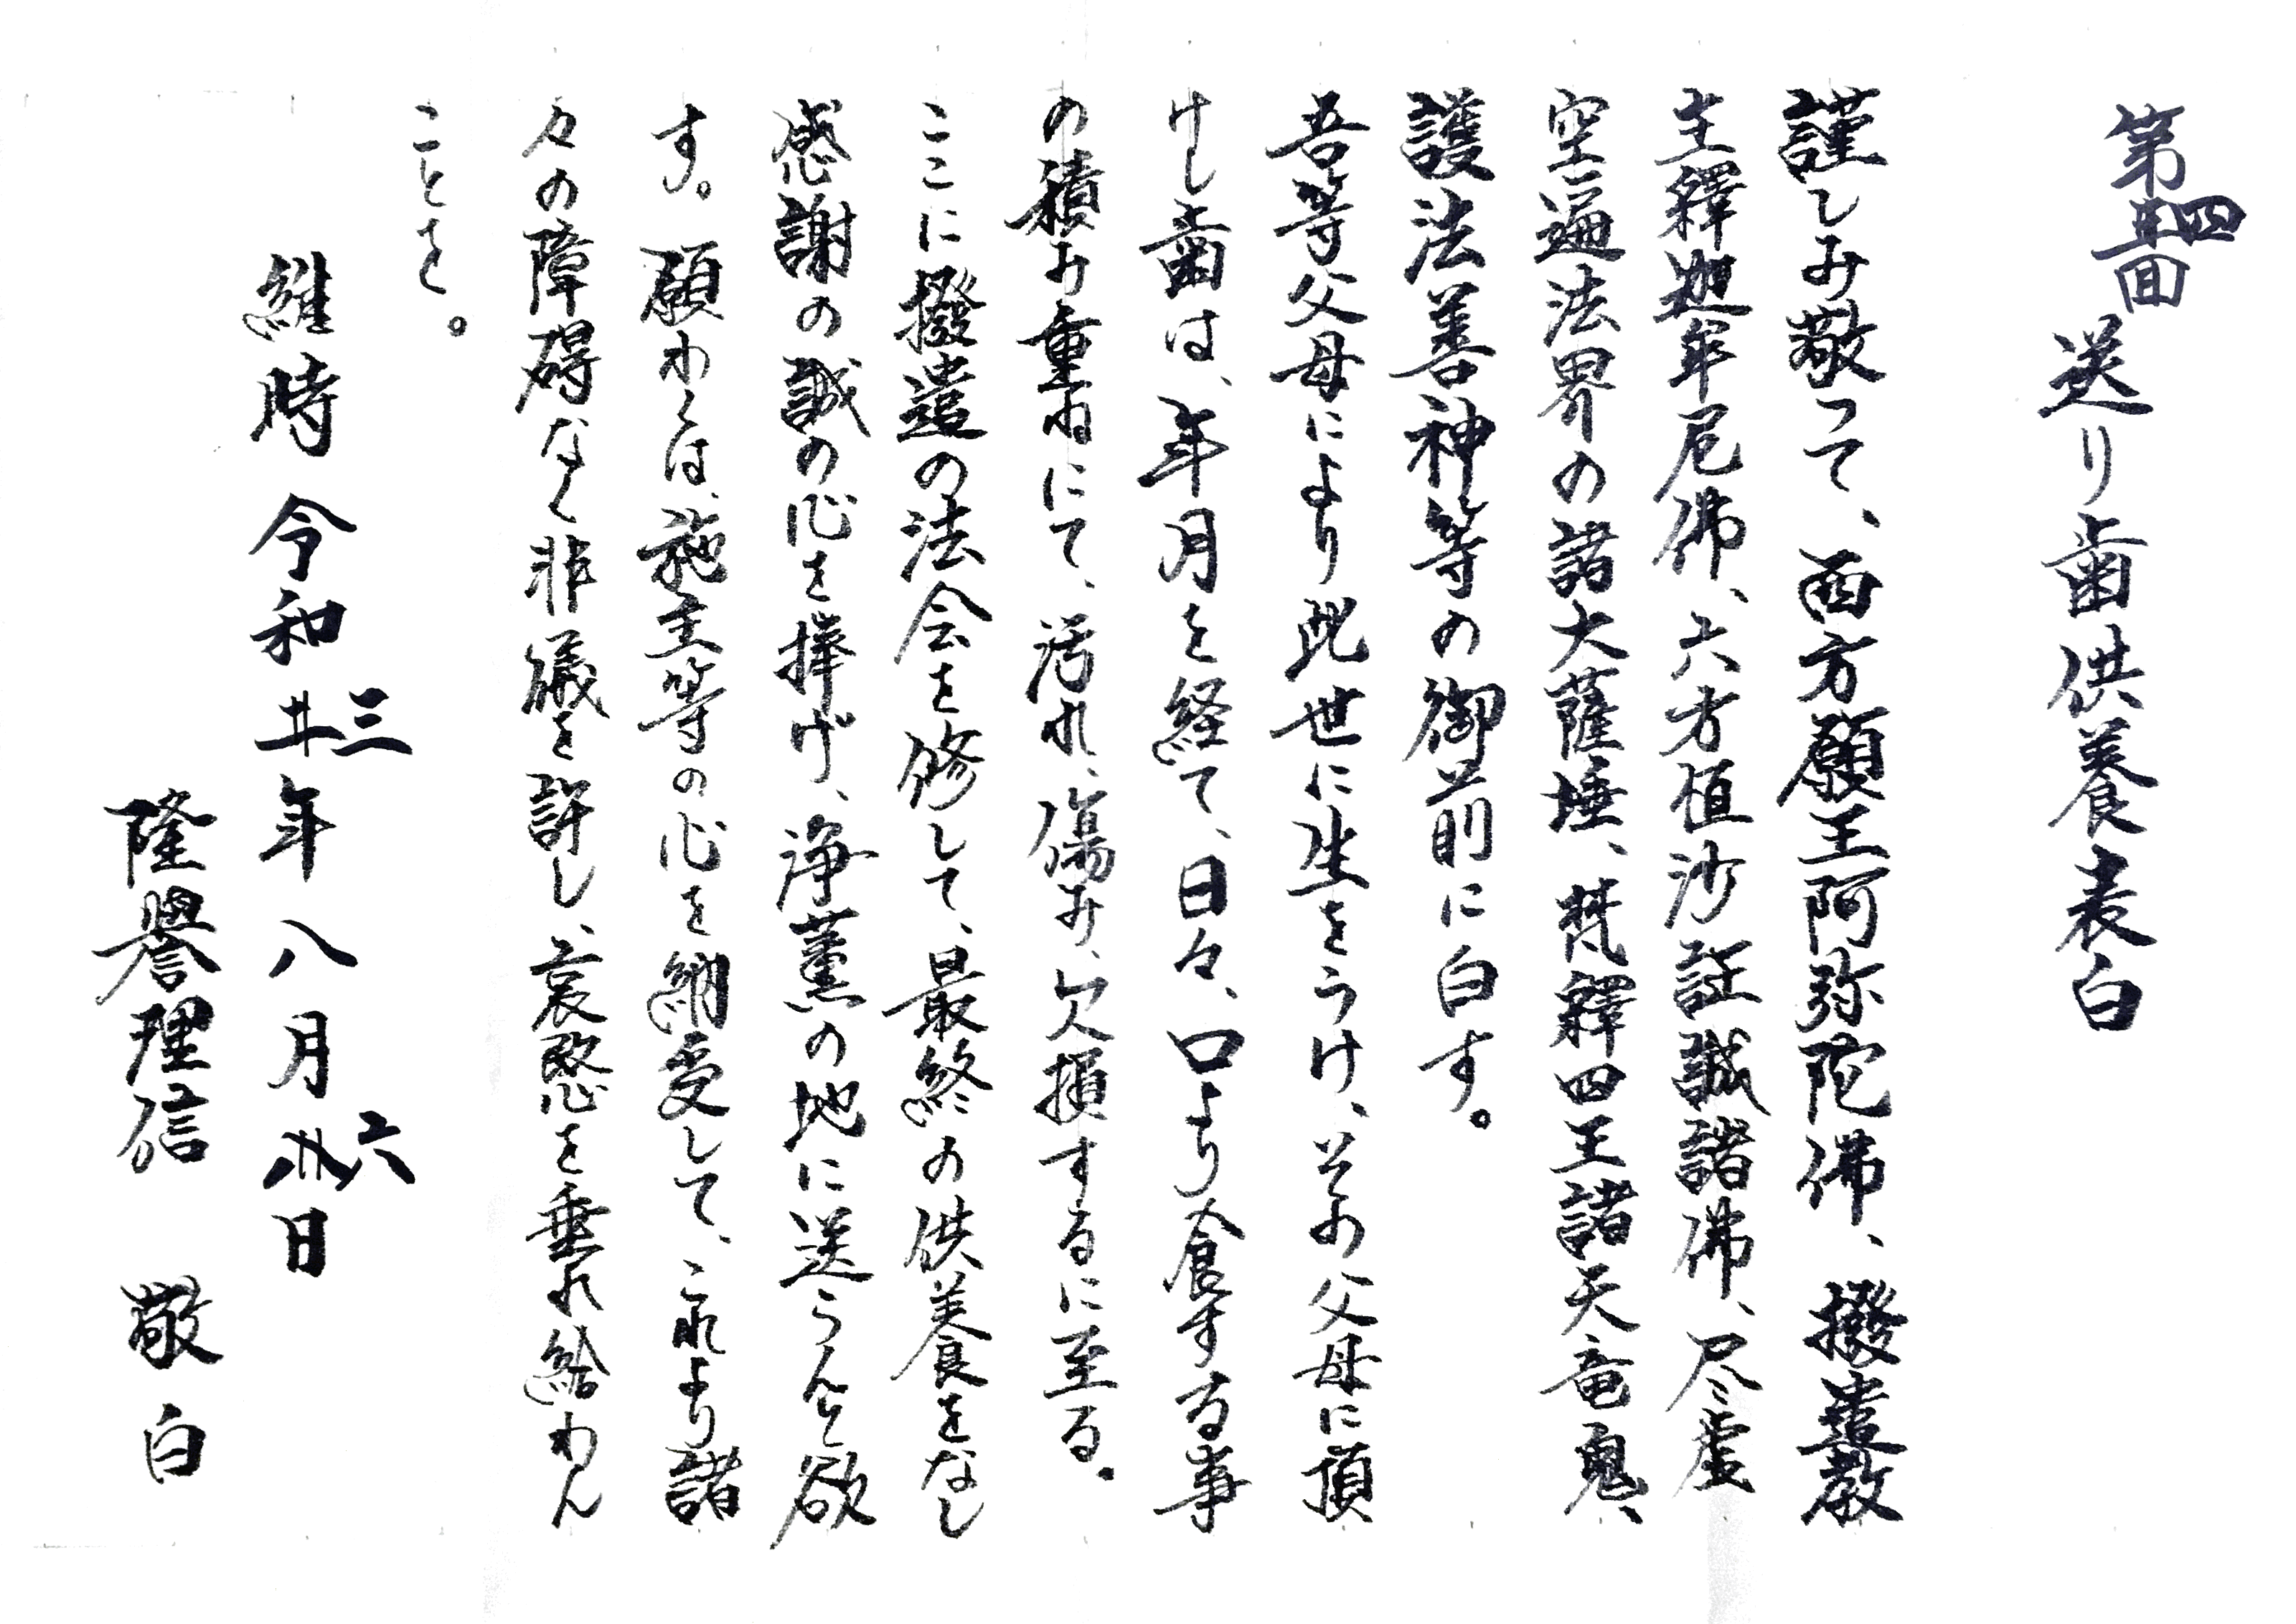 第四回
送り歯供養表白
謹しみ敬って、西方願王阿弥陀佛、撥遣教
主釋迦牟尼佛、六方恒沙証誠諸佛、尽虚
空遍法界の諸大薩埵、梵釋四王諸天竜鬼、
護法善神等の御前に白す。
吾等父母により此世に生をうけ、その父母に頂
けし歯は、年月を経て、日々、口より食する事
の積み重ねにて、汚れ、傷み、欠損するに至る。
ここに撥遣の法会を修して、最終の供養をなし
感謝の誠の心を捧げ、浄薫の地に送らんと欲
す。願わくは、施主等の心を納受して、これより諸
々の障碍なく非儀を許し、哀愍を垂れ給わん
ことを。
維時 令和三年八月六日
隆譽理信 敬白